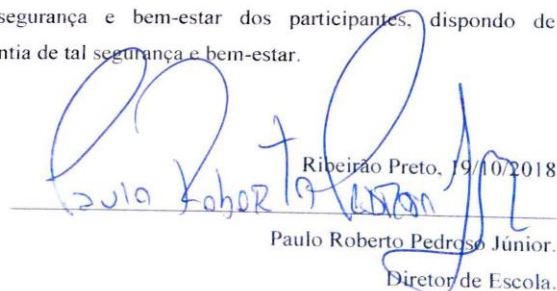 segurança e bem-estar dos participantes, dispondo de
ntia de tal segurança e bem-estar.
Ribeirão Preto, 19/10/2018
Paulo Roberto Pedroso Júnior.
Diretor de Escola.